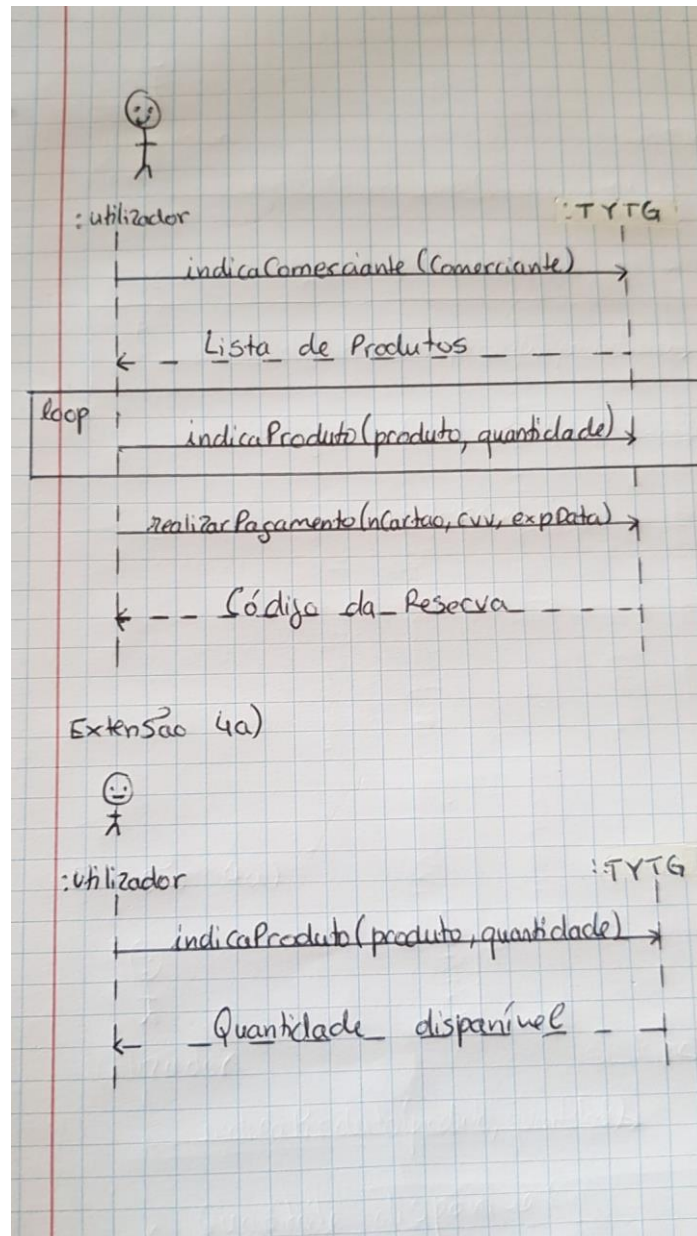 :utilizador :TYTG
indicaComerciante (Comerciante)
Lista de Produtos
loop
indicaProduto (produto, quantidade)
realizarPagamento (nCartao, cvv, expData)
Código da Reserva
Extensão 4a)
:utilizador :TYTG
indicaProduto (produto, quantidade)
Quantidade disponível